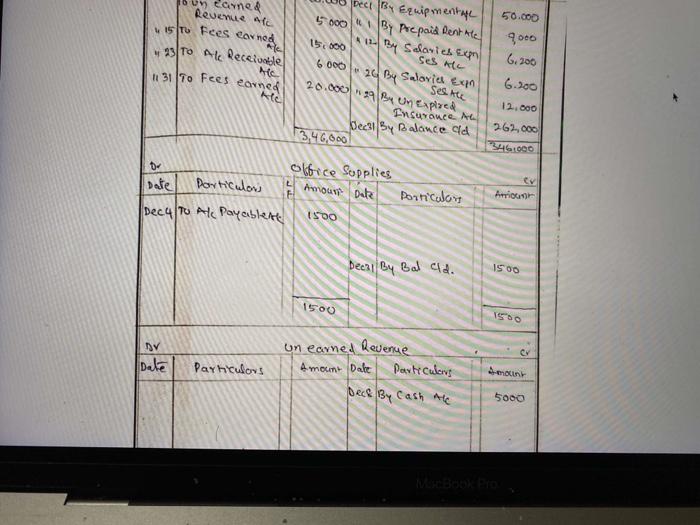 To un earned Dec1 By Equipment A/c 50.000
Revenue A/c 5000 " 1 By Prepaid Rent A/c 9000
" 15 To Fees earned A/c 15,000 " 12 By Salaries Expn ses A/c 6,200
" 23 To A/c Receivable A/c 6000 " 26 By Salaries Expn ses A/c 6.200
" 31 To Fees earned A/c 20.000 " 29 By Un Expired Insurance A/c 12,000
Dec31 By Balance c/d 262,000
3,46,000 346,000
Dr Office Supplies Cr
Date Particulars LF Amount Date Particulars Amount
Dec4 To A/c Payable A/c 1500
Dec31 By Bal c/d. 1500
1500 1500
Dr Un earned Revenue Cr
Date Particulars Amount Date Particulars Amount
Dec8 By Cash A/c 5000
MacBook Pro